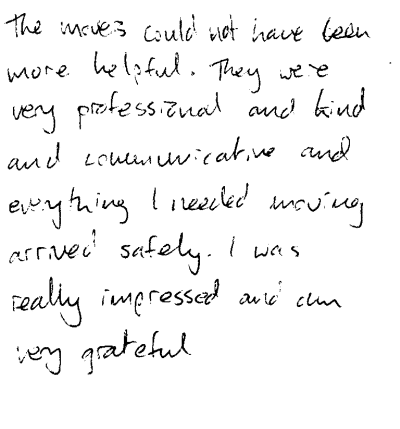 The movers could not have been
more helpful. They were
very professional and kind
and communicative and
everything I needed moving
arrived safely. I was
really impressed and am
very grateful